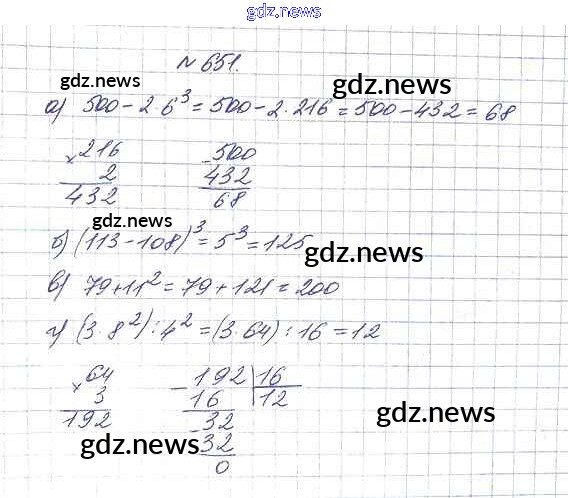 gdz.news
№ 651.
gdz.news
gdz.news
а) 500 - 2·6³ = 500 - 2·216 = 500 - 432 = 68
× 216
2
432
- 500
432
68
gdz.news
б) (113 - 108)³ = 5³ = 125
gdz.news
в) 79 + 11² = 79 + 121 = 200
г) (3·8²) : 4² = (3·64) : 16 = 12
× 64
3
192
- 192 | 16
16 | 12
- 32
32
0
gdz.news
gdz.news